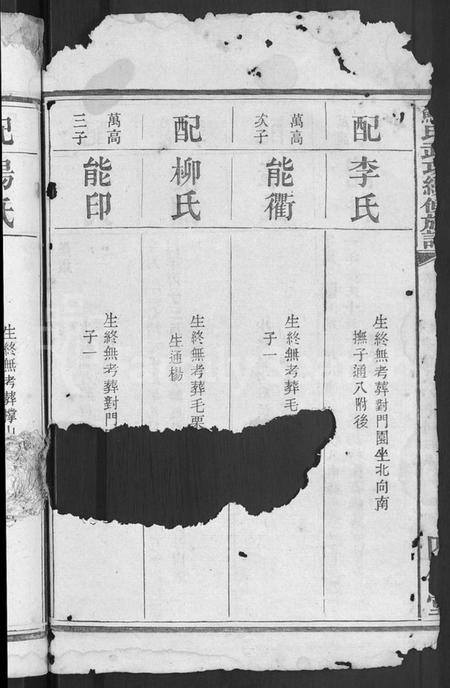 配李氏
生終無考葬對門園坐北向南
撫子通八附後
萬高
次子
能衢
生終無考葬毛
子一
配柳氏
生終無考葬毛栗
生通楊
萬高
三子
能印
生終無考葬對門
子一
氏
生終無考葬